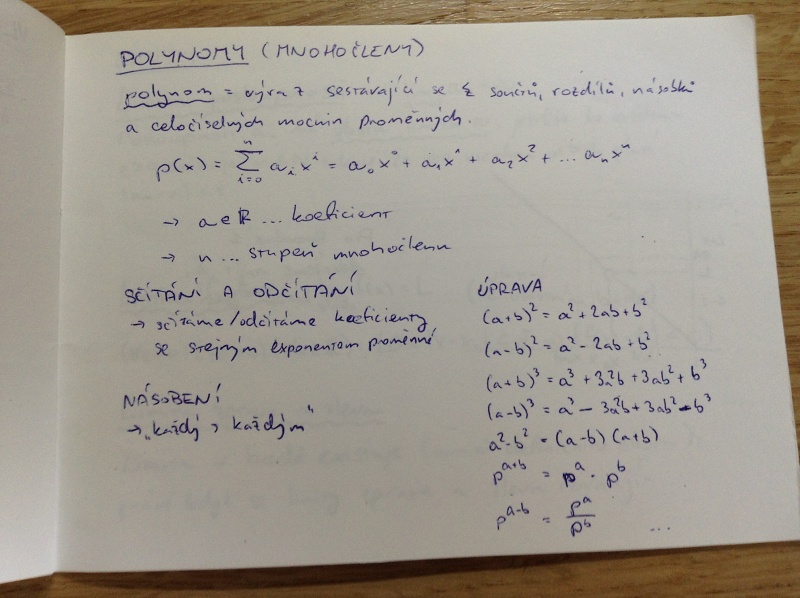 POLYNOMY (MNOHOČLENY)
polynom = výraz sestávající se z součtů, rozdílů, násobků
a celočíselných mocnin proměnných.
p(x) = ∑_{i=0}^{n} a_i x^i = a_0 x^0 + a_1 x^1 + a_2 x^2 + ... a_n x^n
→ a ∈ ℝ ... koeficient
→ n ... stupeň mnohočlenu
SČÍTÁNÍ A ODČÍTÁNÍ
→ sčítáme/odčítáme koeficienty
se stejným exponentom proměnné
NÁSOBENÍ
→ „každý s každým"
ÚPRAVA
(a+b)^2 = a^2 + 2ab + b^2
(a-b)^2 = a^2 - 2ab + b^2
(a+b)^3 = a^3 + 3a^2b + 3ab^2 + b^3
(a-b)^3 = a^3 - 3a^2b + 3ab^2 - b^3
a^2-b^2 = (a-b)(a+b)
p^{a+b} = p^a · p^b
p^{a-b} = p^a / p^b
...